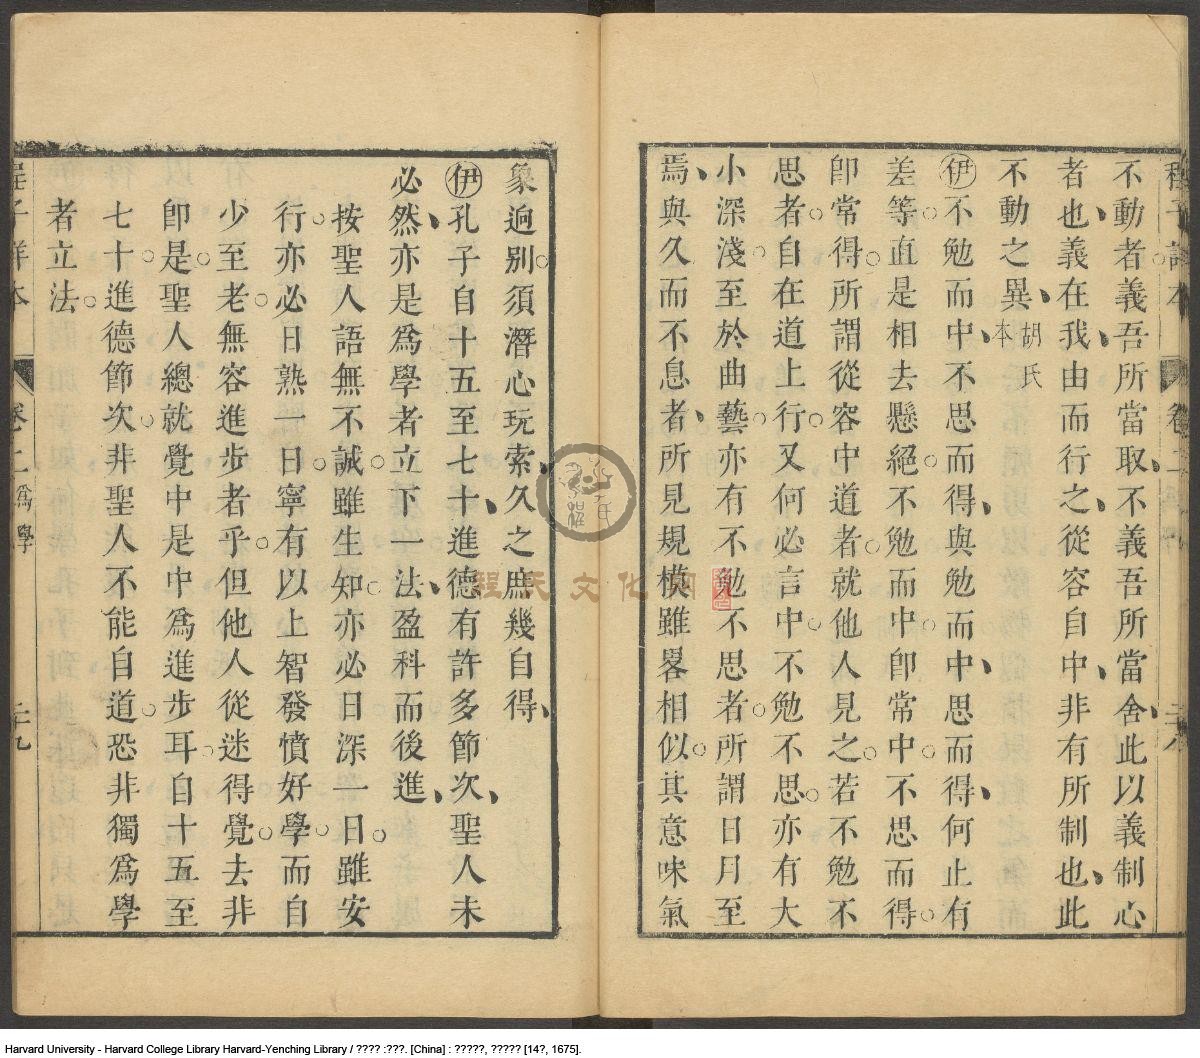 不動者義吾所當取不義吾所當舍此以義制心
者也義在我由而行之從容自中非有所制也此
不動之異胡氏本
伊不勉而中不思而得與勉而中思而得何止有
差等直是相去懸絕不勉而中卽常中不思而得
卽常得所謂從容中道者就他人見之若不勉不
思者自在道上行又何必言中不勉不思亦有大
小深淺至於曲藝亦有不勉不思者所謂日月至
焉與久而不息者所見規模雖畧相似其意味氣
象迥别須潛心玩索久之庶幾自得
伊孔子自十五至七十進德有許多節次聖人未
必然亦是爲學者立下一法盈科而後進
按聖人語無不誠雖生知亦必日深一日雖安
行亦必日熟一日寧有以上智發憤好學而自
少至老無容進步者乎但他人從迷得覺去非
卽是聖人總就覺中是中爲進步耳自十五至
七十進德節次非聖人不能自道恐非獨爲學
者立法
卷二 爲學 二十九
程氏文化網
Harvard University - Harvard College Library Harvard-Yenching Library / ???? :???. [China] : ?????, ????? [14?, 1675].